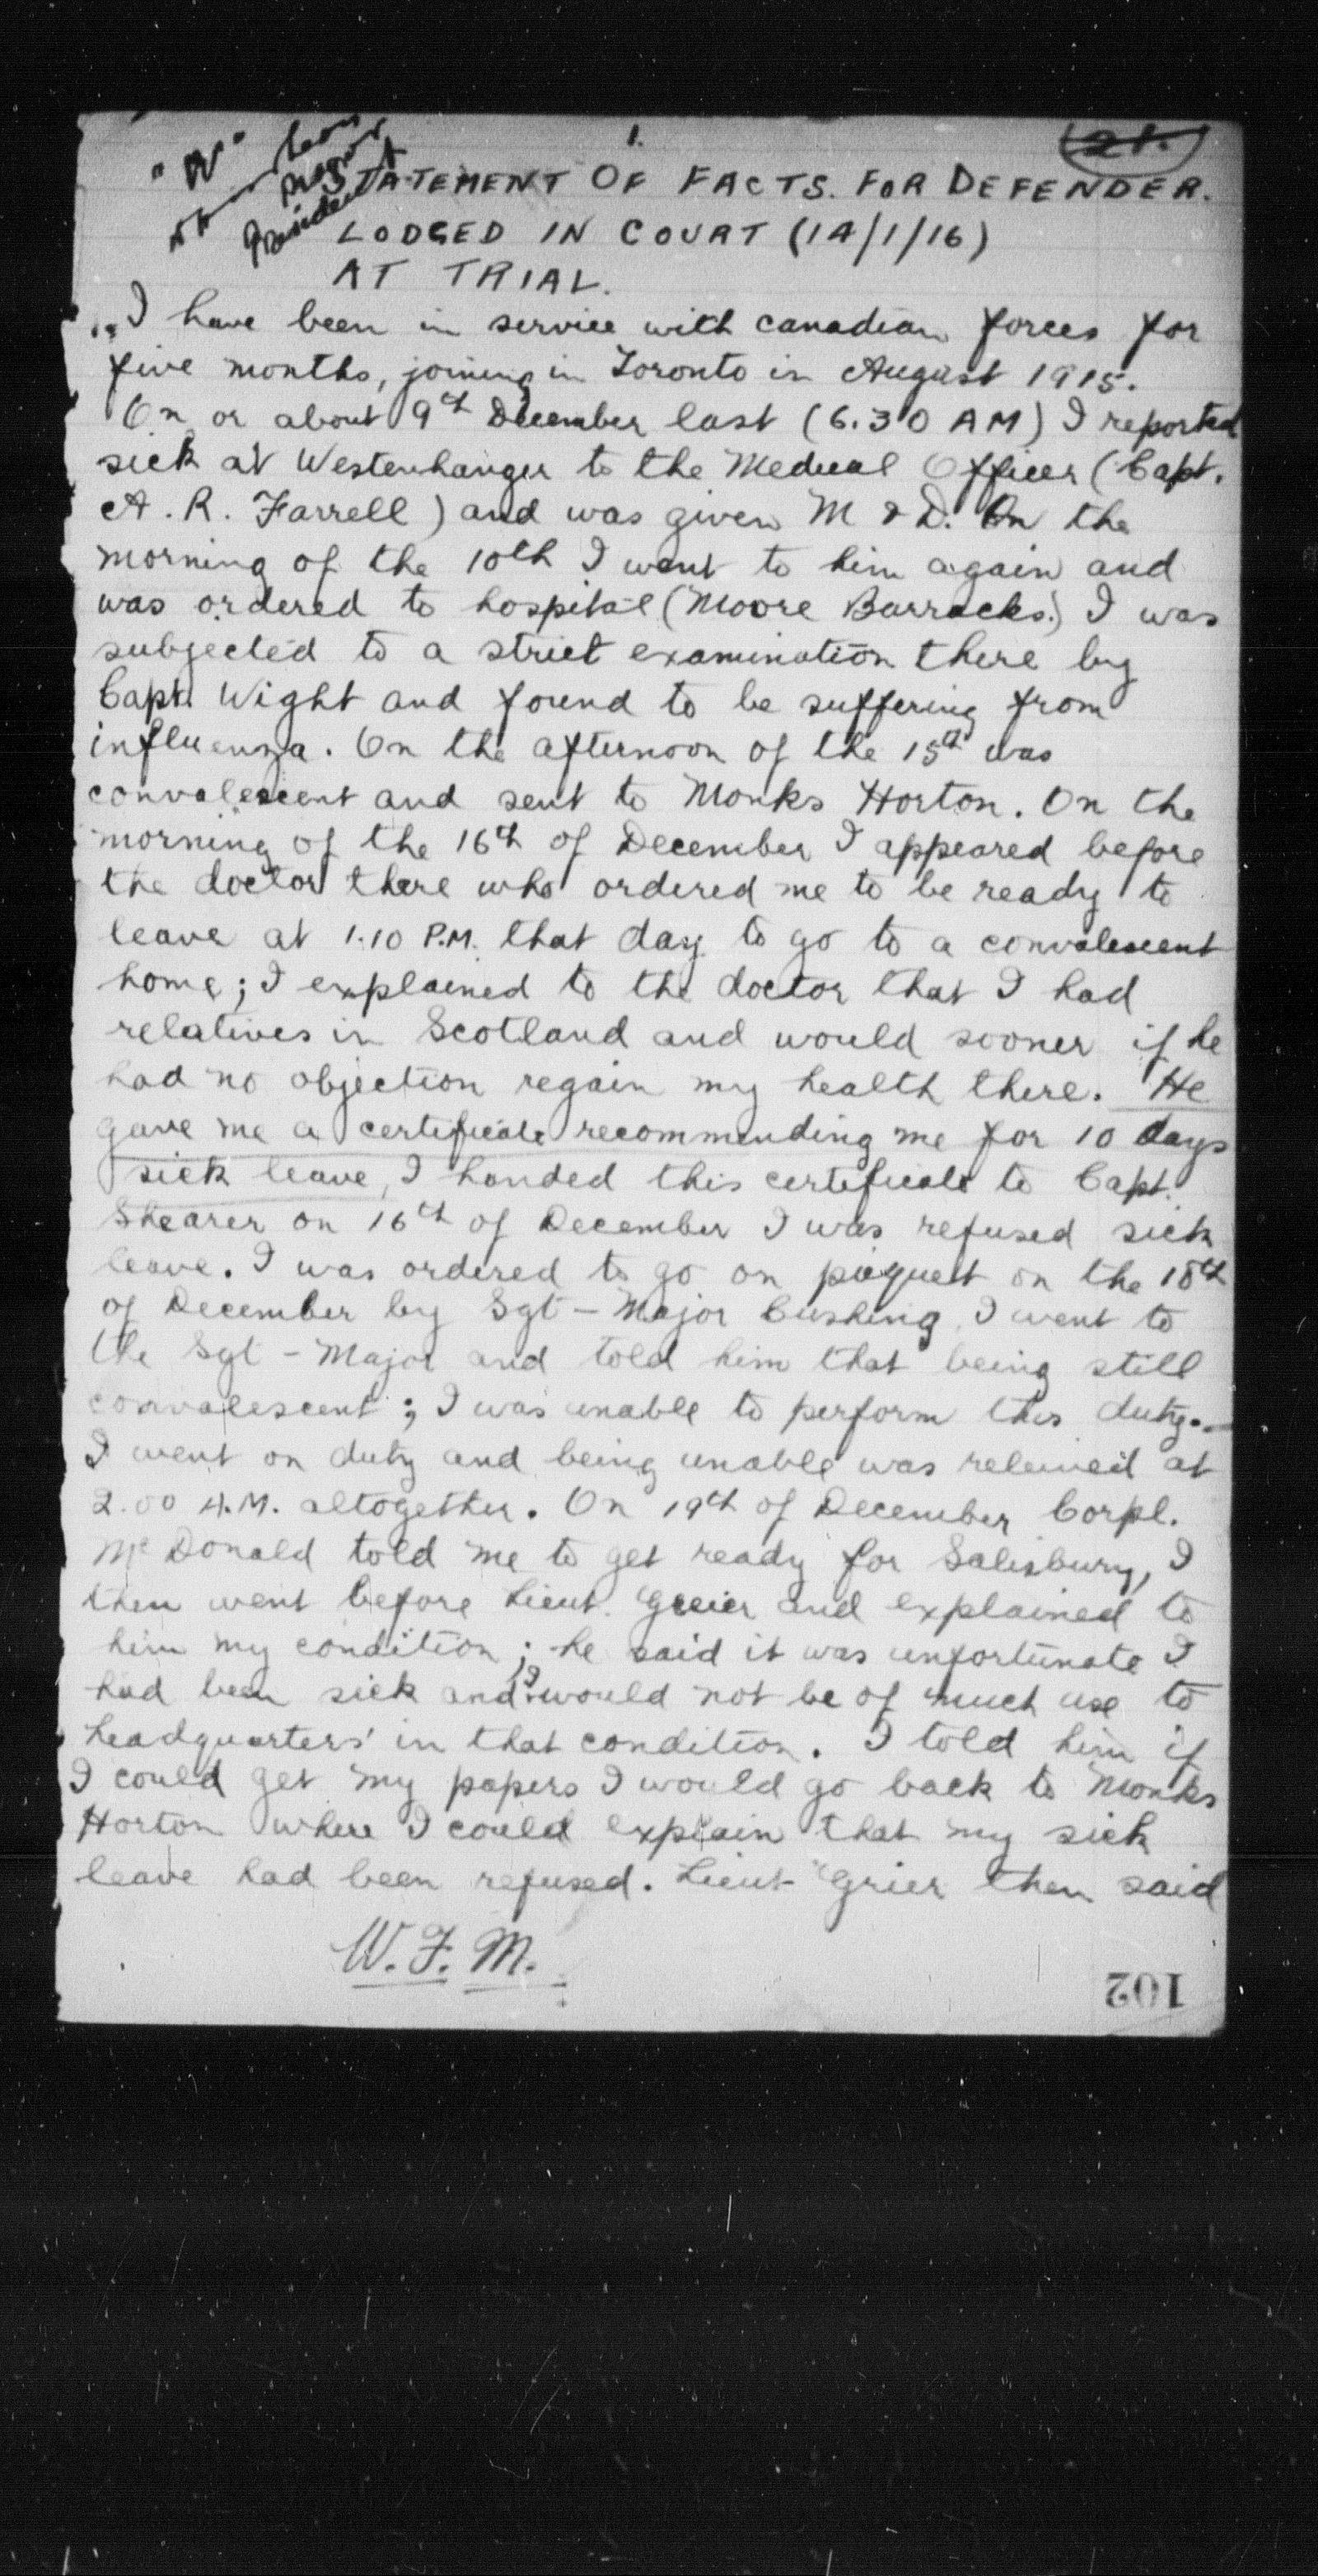 1.
21.
"B"
President
STATEMENT OF FACTS. FOR DEFENDER.
LODGED IN COURT (14/1/16)
AT TRIAL.
"I have been in service with Canadian forces for
five months, joining in Toronto in August 1915.
On or about 9th December last (6.30 AM) I reported
sick at Westenhanger to the Medical Officer (Capt.
A. R. Farrell) and was given M & D. On the
morning of the 10th I went to him again and
was ordered to hospital (Moore Barracks.) I was
subjected to a strict examination there by
Capt. Wight and found to be suffering from
influenza. On the afternoon of the 15th was
convalescent and sent to Monks Horton. On the
morning of the 16th of December I appeared before
the doctor there who ordered me to be ready to
leave at 1.10 P.M. that day to go to a convalescent
home; I explained to the doctor that I had
relatives in Scotland and would sooner if he
had no objection regain my health there. He
gave me a certificate recommending me for 10 days
sick leave, I handed this certificate to Capt.
Shearer on 16th of December I was refused sick
leave. I was ordered to go on picquet on the 18th
of December by Sgt - Major Cushing. I went to
the Sgt - Major and told him that being still
convalescent; I was unable to perform this duty.
I went on duty and being unable was relieved at
2.00 A.M. altogether. On 19th of December Corpl.
McDonald told me to get ready for Salisbury, I
then went before Lieut. Greier and explained to
him my condition; he said it was unfortunate I
had been sick and I would not be of much use to
headquarters in that condition. I told him if
I could get my papers I would go back to Monks
Horton where I could explain that my sick
leave had been refused. Lieut Grier then said
W. F. M.
102